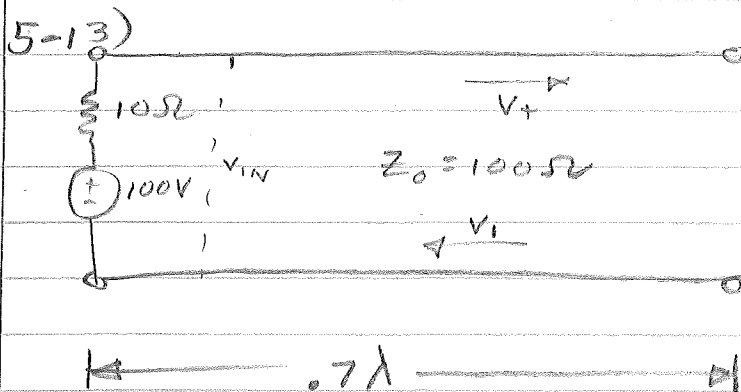 5-13)
10Ω
V+
VIN
Z₀ = 100Ω
100V
V₁
.7λ